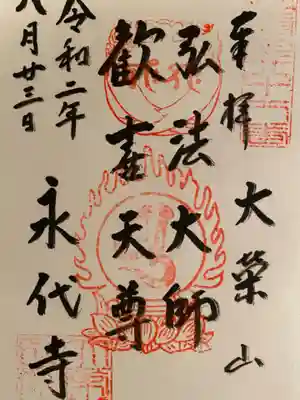 奉拝
大榮山
弘法大師
歓喜天尊
永代寺
令和二年
八月廿三日